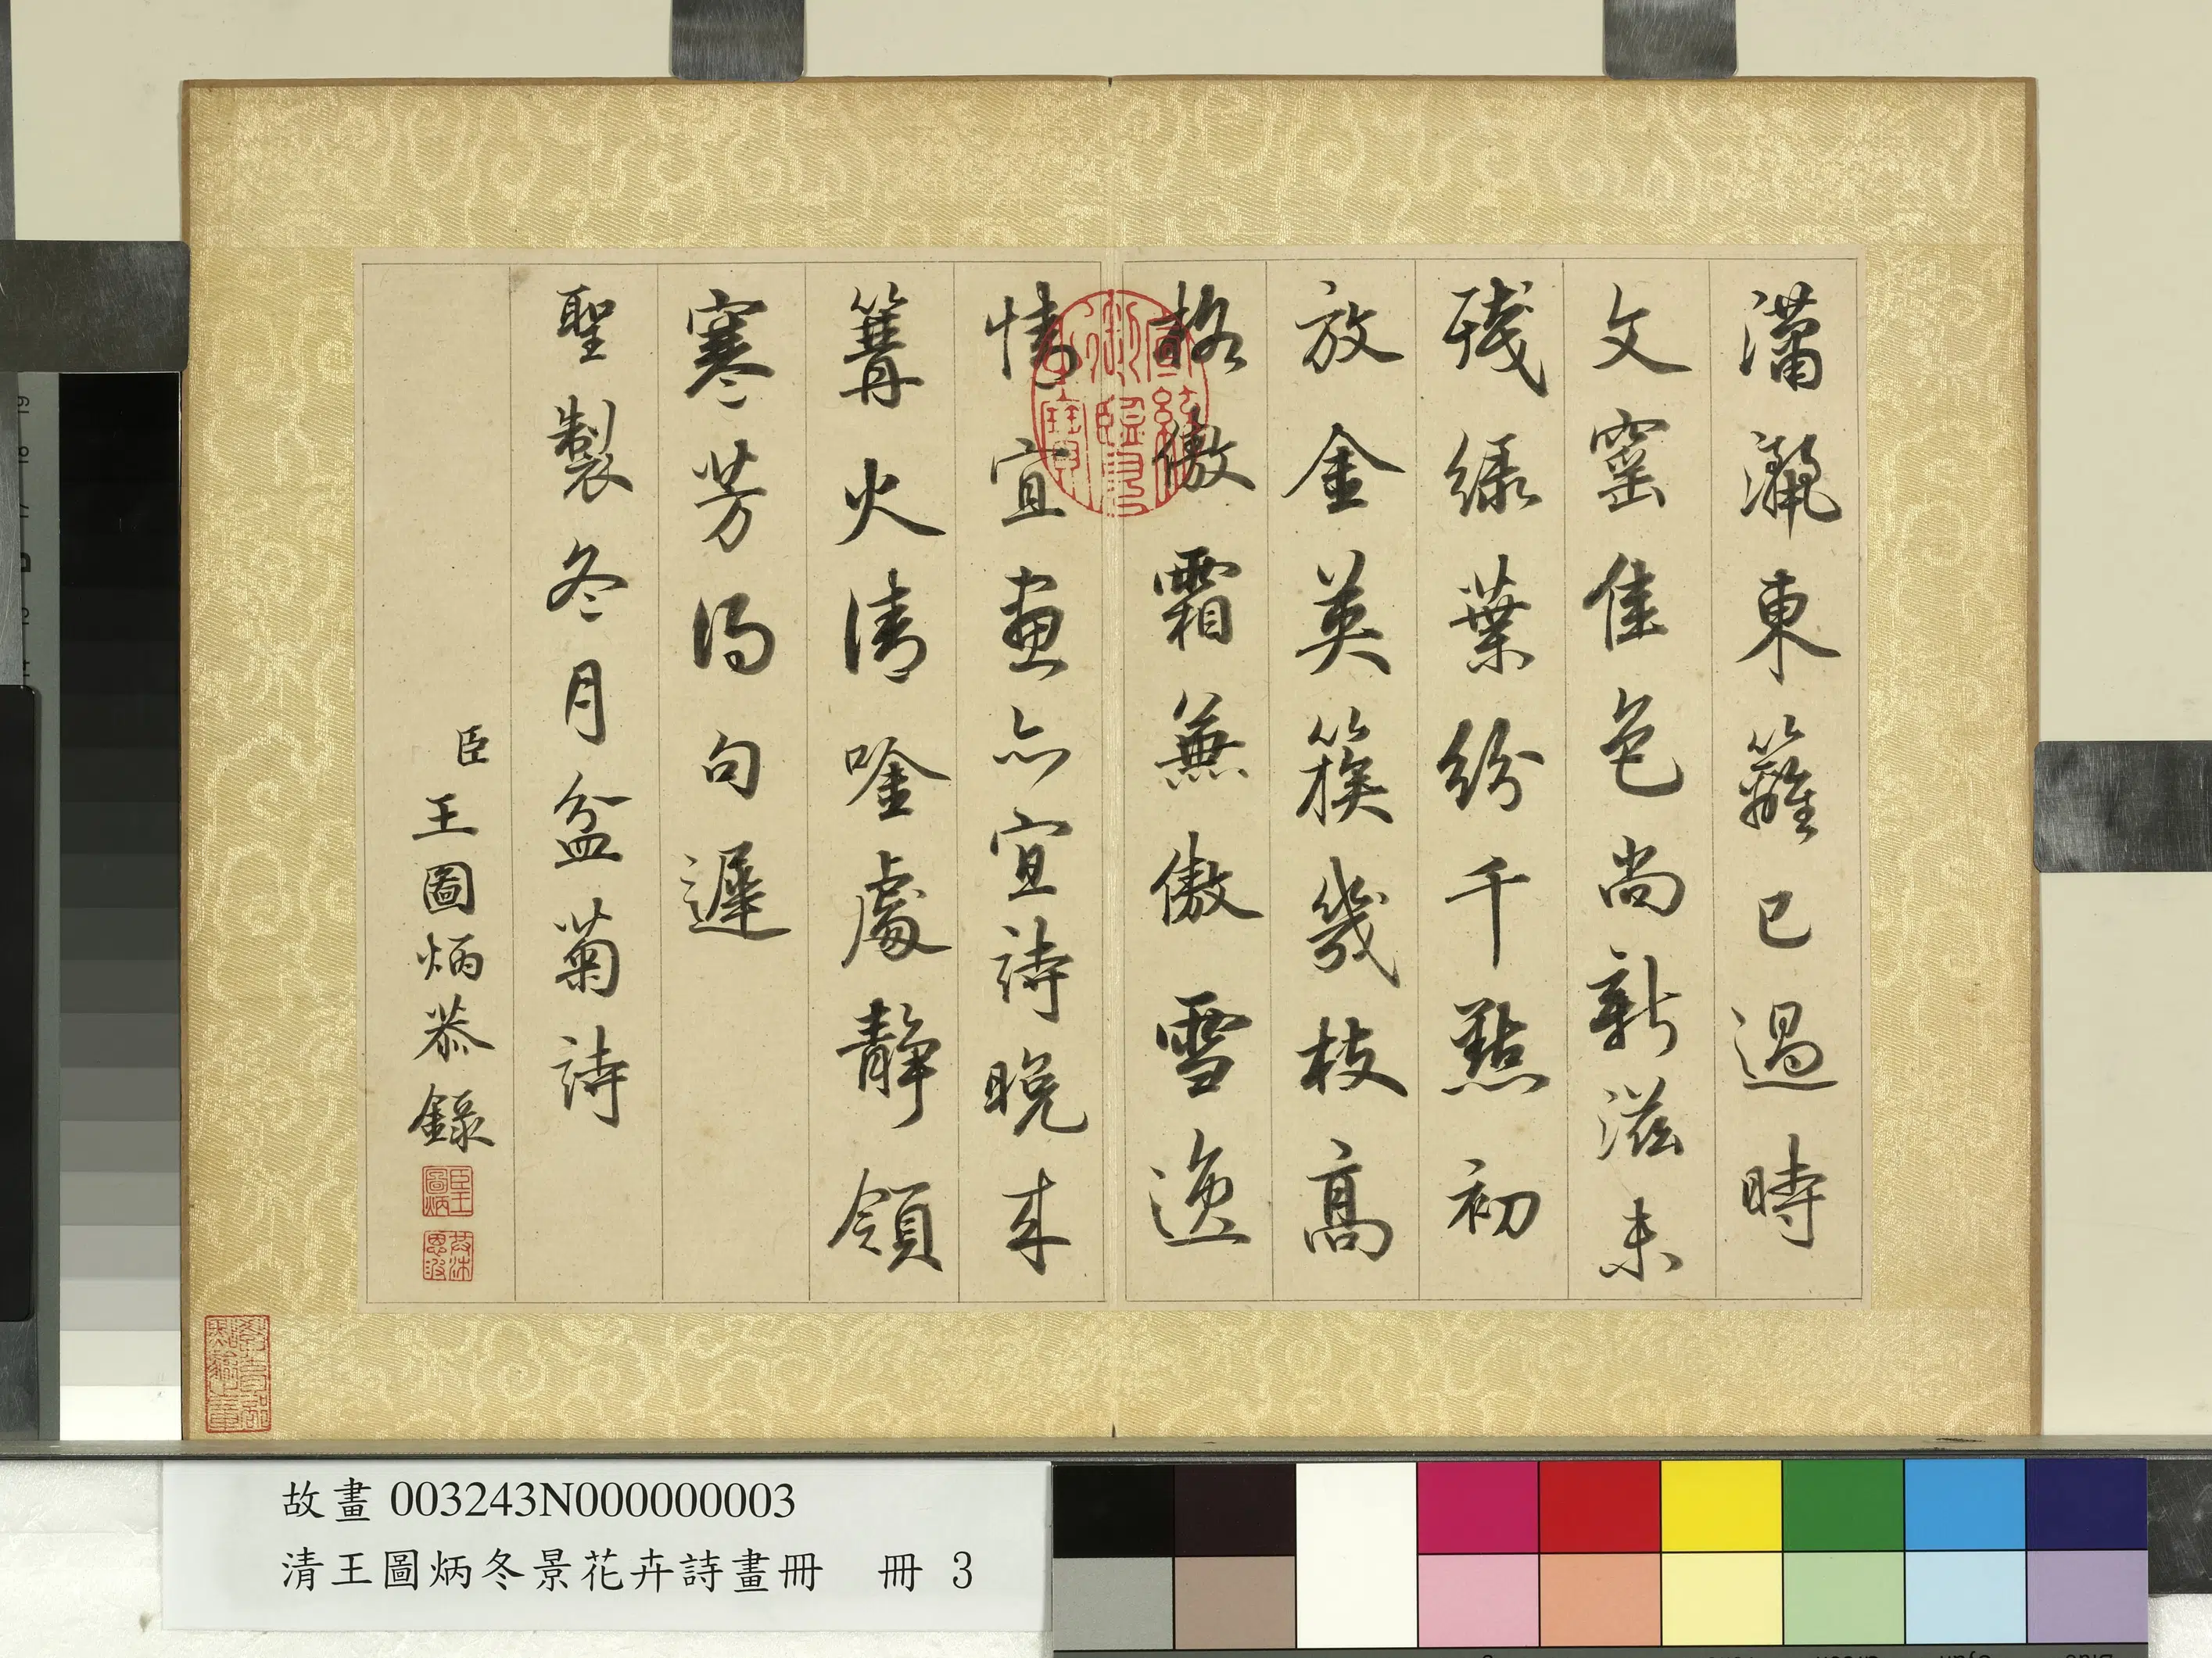 瀟灑東籬已過時
文窰佳色尚新滋未
殘綠葉紛千點初
放金英簇幾枝高
格傲霜兼傲雪逸
情宜畫亦宜詩晚來
篝火清唫處靜領
寒芳得句遲
聖製冬月盆菊詩
臣王圖炳恭錄
臣王圖炳
宣統御覽之寶
故畫003243N000000003
清王圖炳冬景花卉詩畫冊 冊 3